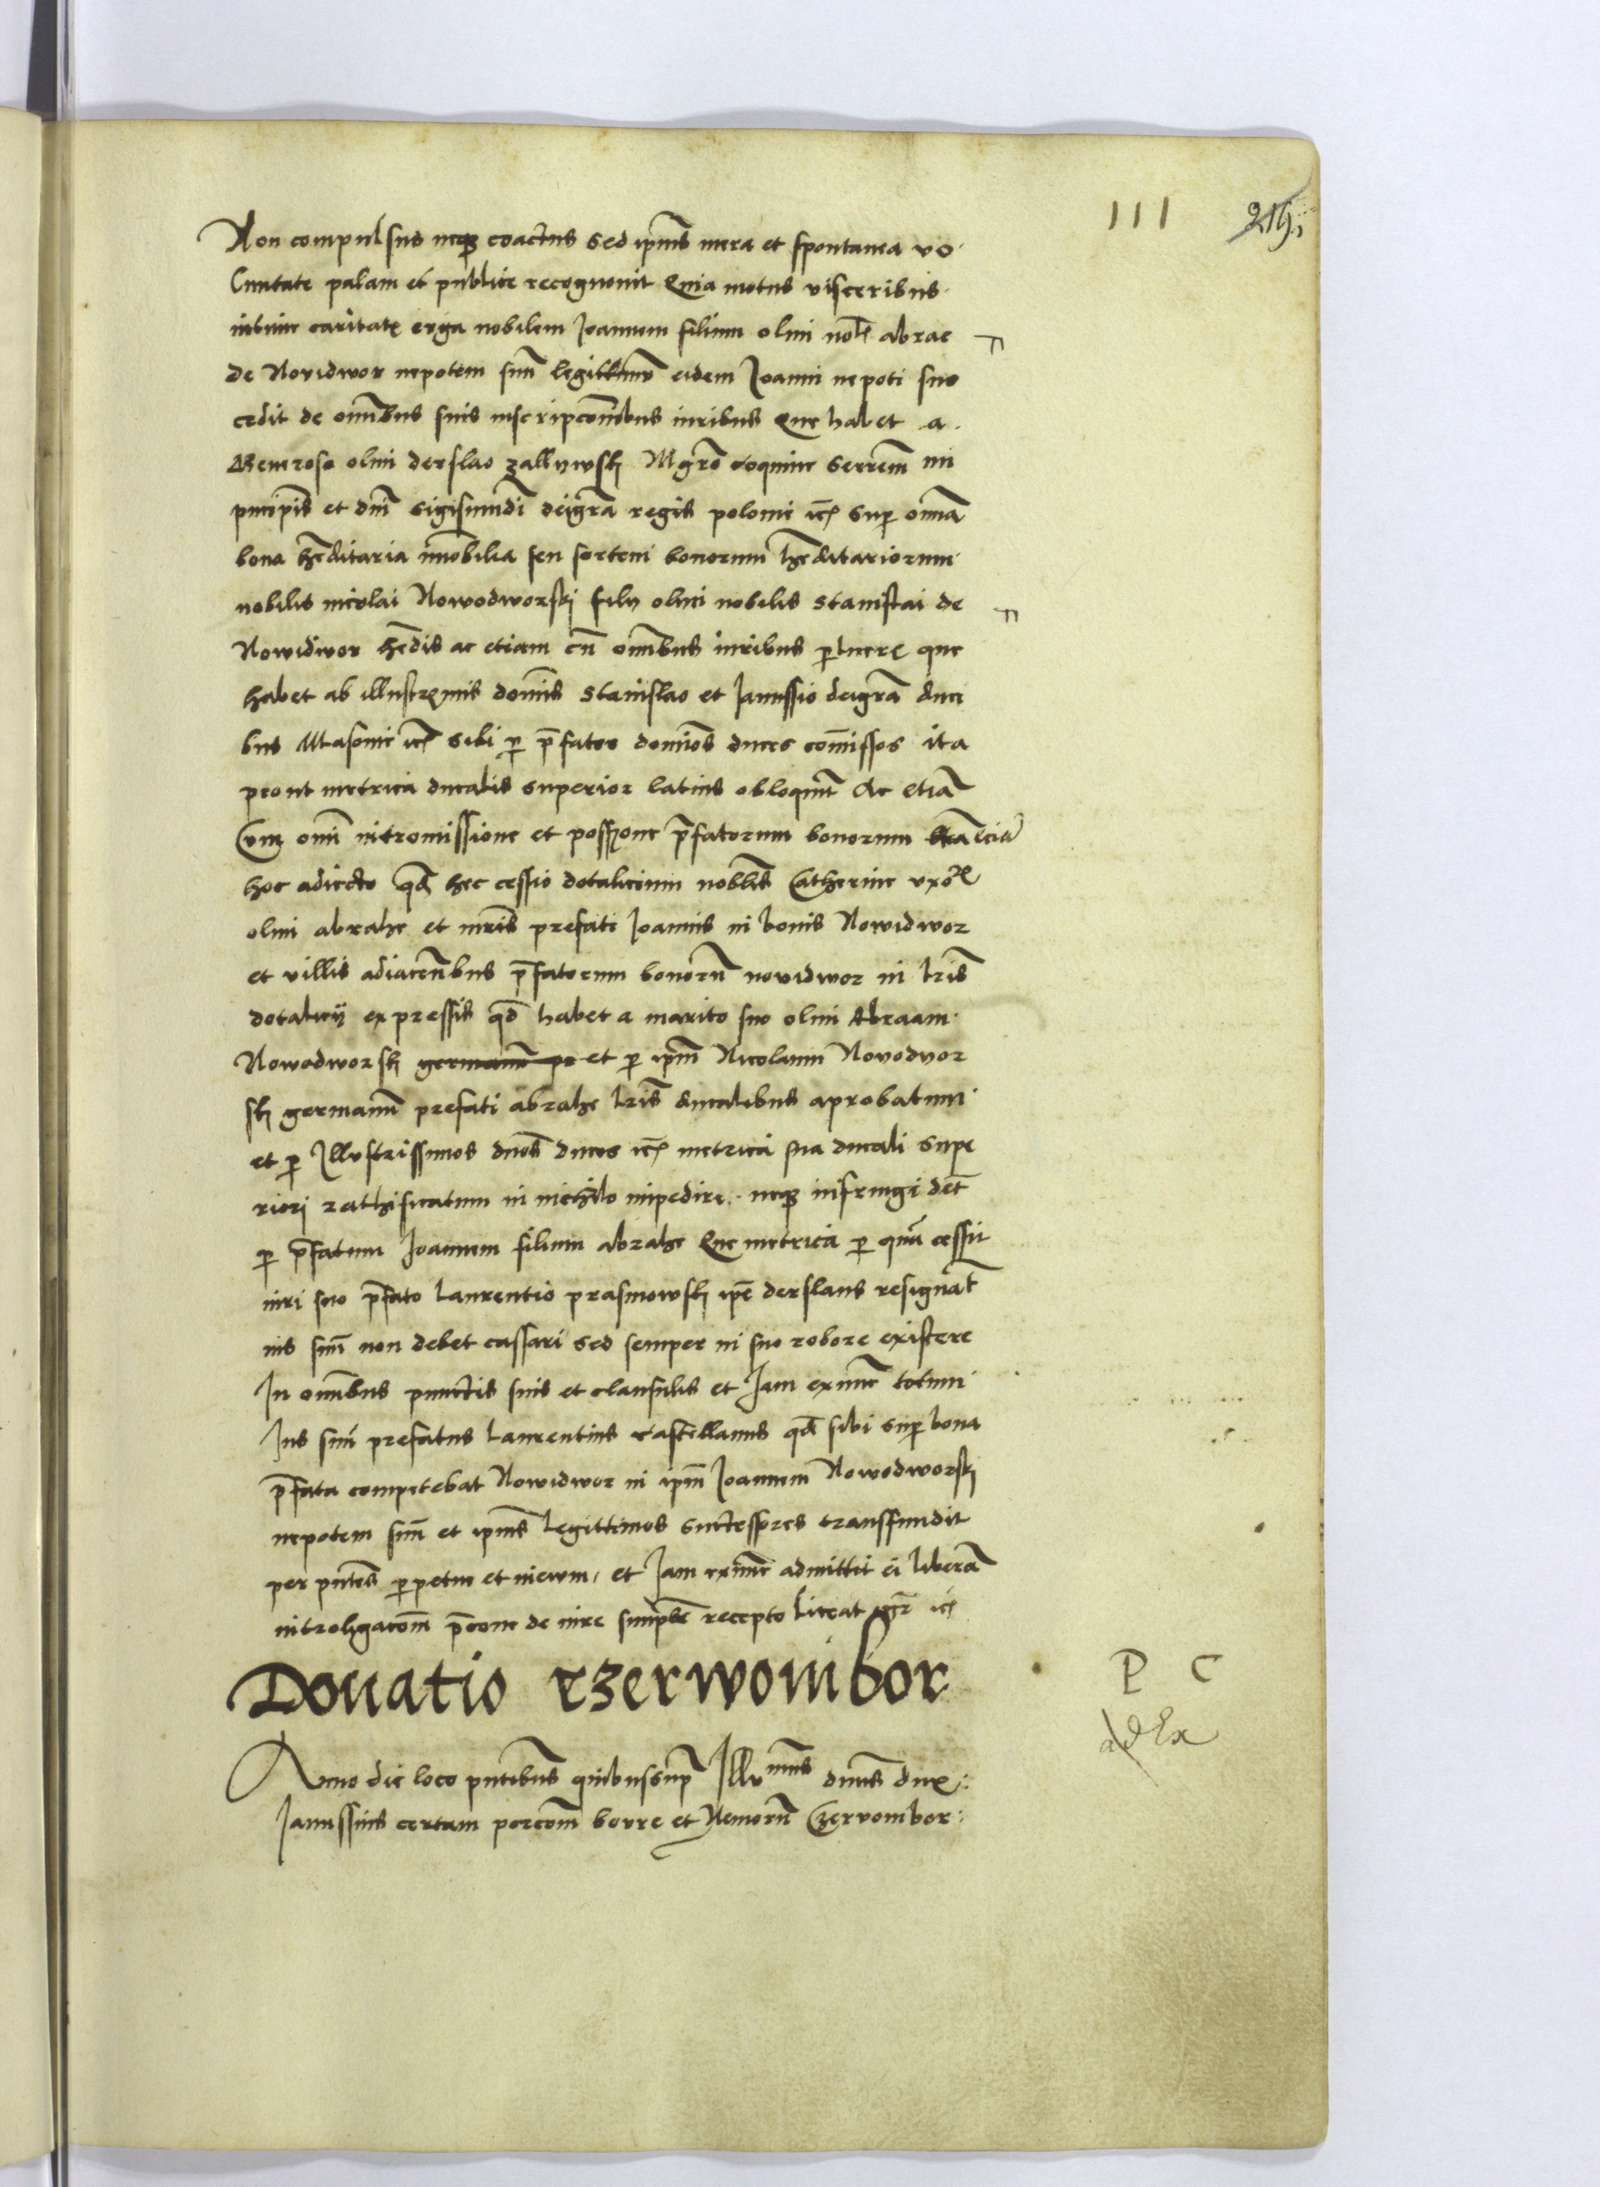 111 219.
Non compulsus neqz coactus sed ipius mera et spontanea vo
luntate palam et publice recognouit Quia motus visceribus
intime caritate erga nobilem Joannem filium olim nobl abrae
de Novidwor nepotem suu legittimu eidem Joanni nepoti suo
cedit de omibus suis inscripcoibus iuribus que habet a
generoso olim derslao zallywsky Mgro coquine serremi
pncipis et dni Sigismundi dei gra regis polonie etc super omia
bona hereditaria imobilia seu sortem bonorum hereditariorum
nobilis nicolai Nowodworski filii olim nobilis stanislai de
Nowidwor heredis ac etiam cu omibus iuribus pertuere que
habet ab illustrimis dominis Stanislao et Janussio dei gra duci
bus Masouie etc sibi per prefatos dominos duces comissos ita
prout metrica ducalis superior latius obloquit Ac etia
Cum omi intromissione et possione prefatorum bonorum
hoc adiecto qd hec cessio dotalicium noblis Catherine vxoris
olim abrahe et mris prefati Joannis in bonis Nowidwor
et villis adiacentibus prefatorum bonoru novidwor in lris
dotalicy expressis qd habet a marito suo olim Abraam
Nowodworsky germanu et per ipm Nicolaum Novodvor
sky germanum prefati abrahe lris ducalibus aprobatum
et per Illustrissimos dnos duces etc metrica sua ducali supe
riori rathificatum in nichilo impedire neqz infringi debet
per prefatum Joannem filium abrahe Que metrica per qua cessit
iuri suo prefato Laurentio prasmowsky ipe derslaus resignat
ius suu non debet cassari sed semper in suo robore existere
In omibus punctis suis et clausulis et Jam exnunc totum
Jus suu prefatus Laurentius castellanus qd sibi super bona
prefata competebat Nowidwor in ipm Joannem Nowodworski
nepotem suu et ipius legittimos successores transfundit
per pntes perpetue et in ewum, et Jam exnunc admittit ei libera
intrologacom de iure recepto liceat etc
Donatio czerwonibor
P C
ad Ex
Anno die loco pntibus quibus supra Illumus dnus dux
Janussius certam porcom borre et Nemoru Czervonibor